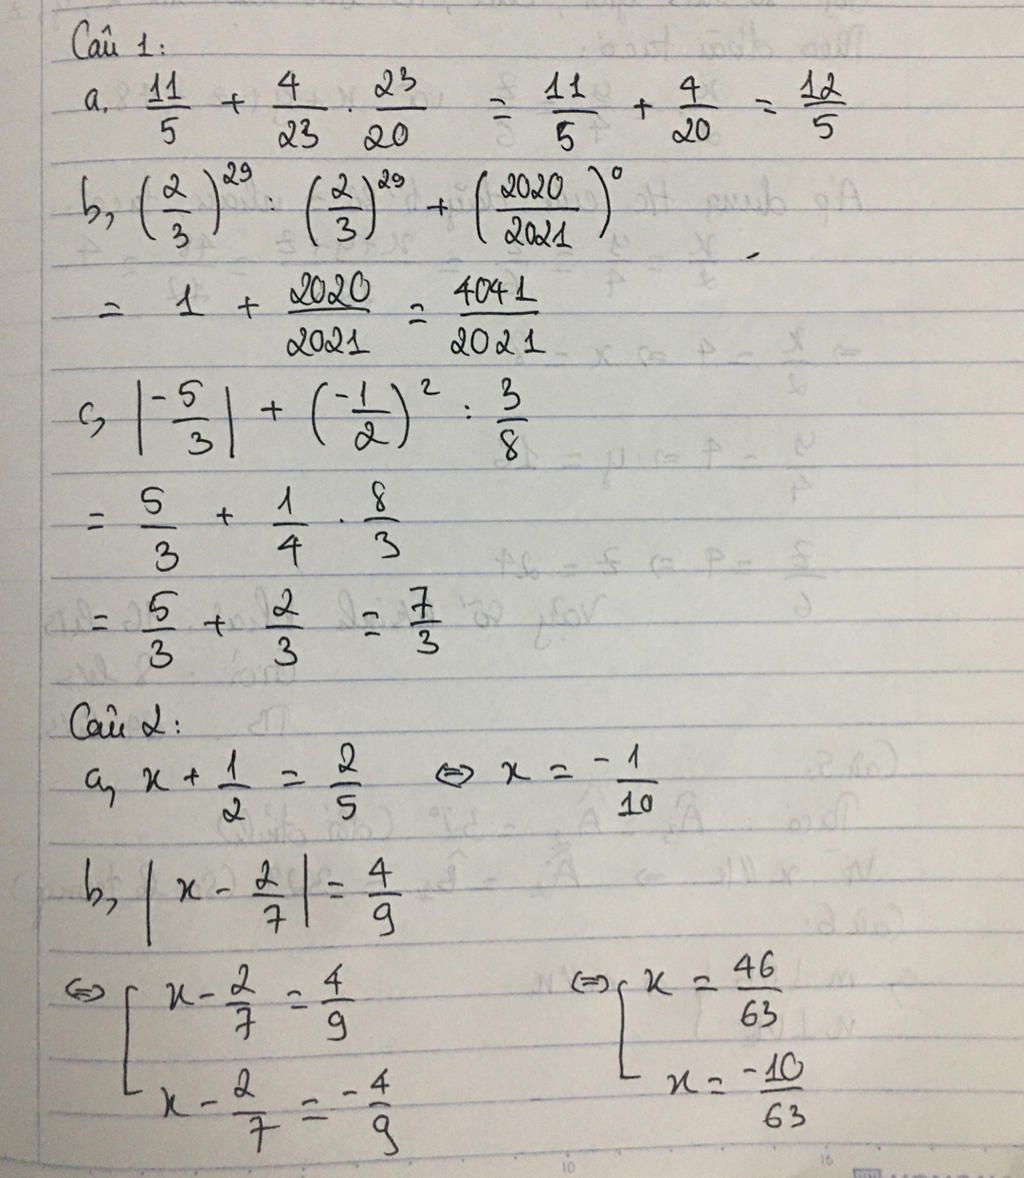 Câu 1:
a, 11/5 + 4/23 . 23/20 = 11/5 + 4/20 = 12/5
b, (2/3)^29 : (2/3)^29 + (2020/2021)^0
= 1 + 2020/2021 = 4041/2021
c, |-5/3| + (-1/2)^2 : 3/8
= 5/3 + 1/4 . 8/3
= 5/3 + 2/3 = 7/3
Câu 2:
a, x + 1/2 = 2/5 ⇔ x = -1/10
b, |x - 2/7| = 4/9
⇔ [ x - 2/7 = 4/9 ⇔ [ x = 46/63
x - 2/7 = -4/9 x = -10/63